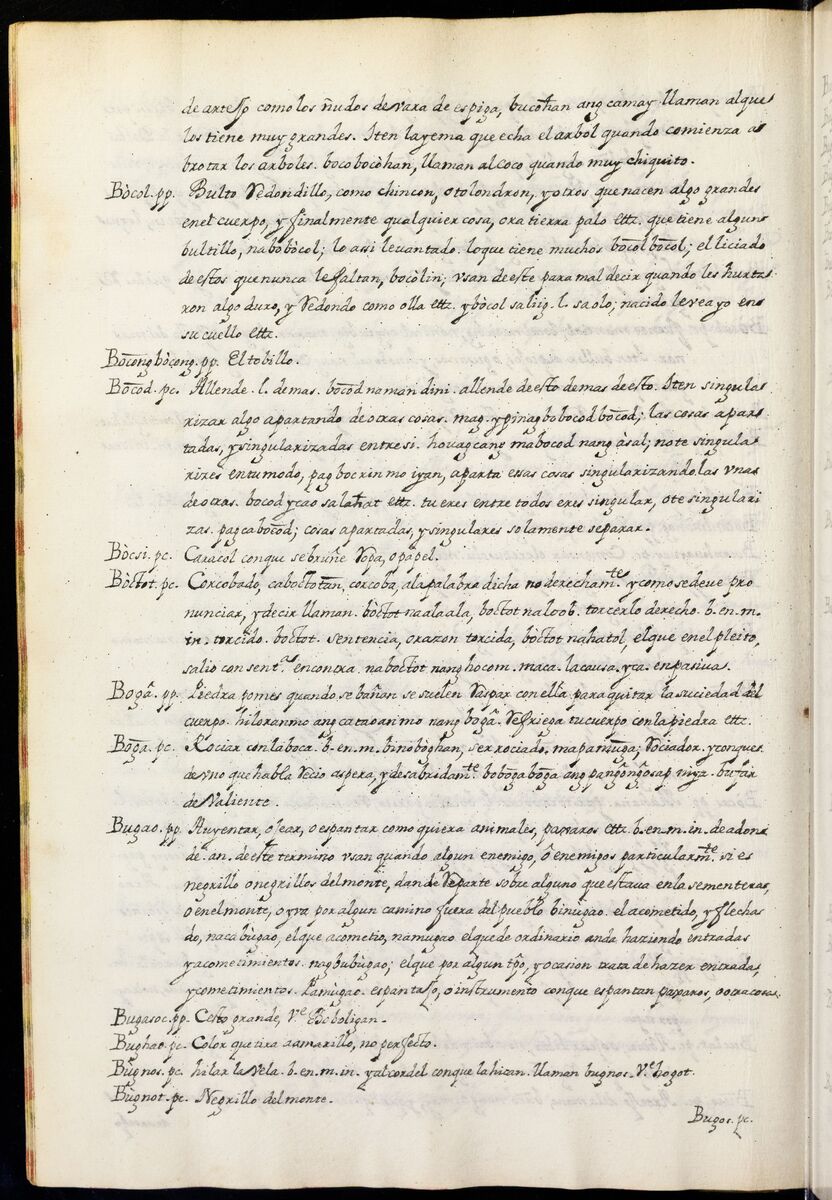 de artejo como los ñudos de vara de espiga, bucohan ang camay llaman al que
los tiene muy grandes. Iten la yema que echa el arbol quando comienza a
brotar los arboles. bocobocòhan, llaman al Coco quando muy chiquito.
Bòcol. pp. Bulto Redondillo, como chincon, o tolondron, y otros que nacen algo grandes
en el cuerpo, y finalmente qualquier cosa, ora tierra palo etc. que tiene algun
bultillo, nabobòcol; lo assi levantado. lo que tiene muchos bocolbocol; el liciado
de estos que nunca le faltan, bocòlin; vsan de este para mal decir quando les hurta
ron algo duro, y Redondo como olla etc. ybòcol saliig. l. saolo; nacido le vea yo en
su cuello etc.
Bocongbòcong. pp. El tobillo.
Bocod. pc. Allende. l. demas. bocod naman dini. allende de esto demas de esto. Iten singula
rizar algo apartando de otras cosas. mag. y pinagbobocodbocod; las cosas apar
tadas, y singularizadas entre si. houag cang mabocod nang asal; no te singula
rizes en tu modo, pagbocrin mo iyan, aparta essas cosas singularizandolas vnas
de otras. bocod ycao salahat etc. tu eres entre todos eres singular, o te singulari
zas. pagcabocod; cosas apartadas, y singulares solamente separar.
Bòcsi. pc. Caracol con que se bruñe Ropa, o papel.
Bòctot. pc. Corcobado, caboctotan, corcoba, a la palabra dicha no derecham.te y como se deve pro
nunciar, y decir llaman. bòctot na alaala, boctot na loob. torcerlo derecho. b. en. m.
in. torcido. boctot. sentencia, o razon torcida, bòctot na hatol, el que en el pleito,
salio con sent.ª en contra. naboctot nang hocom. maca. la causa. yca. en pasiva.
Bogâ. pp. Piedra pomes quando se bañan se suelen Raspar con ella para quitar la suciedad del
cuerpo. hiloran mo ang cataoan mo nang bogâ. Refriega tu cuerpo con la piedra etc.
Boga. pc. Rociar con la boca. b. en. m. binobòghan, ser rociado, mapamuga; Rociador. y con que
de vno que habla Recio aspera, y desabridam.te bobogaboga ang pangongosap niya. bufar
de Valiente.
Bugao. pp. Auyentar, ojear, o espantar como quiera animales, paxaros etc. b. en. m. in. de adon
de. an. de este termino vsan quando algun enemigo, ô enemigos particularm.te si es
negrillo o negrillos del monte, dan de Reparte sobre alguno que estava en la sementeras,
o en el monte, o yva por algun camino fuera del pueblo binùgao. el acometido, y flecha
do, nacabùgao, el que acometio, namugao el que de ordinario anda haziendo entradas
y acometimientos. nagbubùgao; el que por algun tpo, y ocasion trata de hazer entradas,
y cometimientos. Pamùgao. espantajo, o instrumento con que espantan paxaros, o otra cosa.
Bugasoc. pp. Cesto grande, V.e Boboligan.
Bughao. pc. Color que tira a amarillo, no perfecto.
Bùgnos. pc. hilar la Vela. b. en. m. in. y al cordel con que la hizan. llaman bugnos. V.e hogot.
Bùgnot. pc. Negrillo del monte.
Bugos. pc.